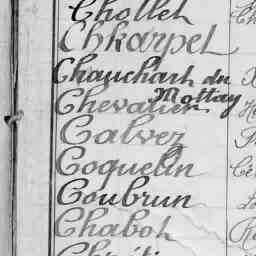 Chollet
Chkarpet
Chauchart du
Mottay
Chevalier
Calvez
Coquelin
Coubrun
Chabot